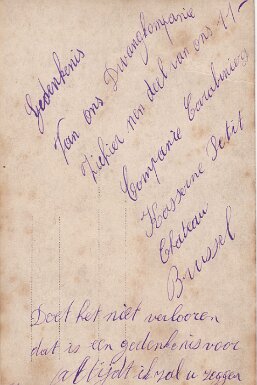 Gedenkenis
Van ons Dwangkompanie
Ziehier nen deel van ons 11-
Companie Carabiniers
Kasserne Petit
Chateau
Brussel
Doet het niet verlooren
dat is een gedenkenis voor
altijdt ik zal u zeggen